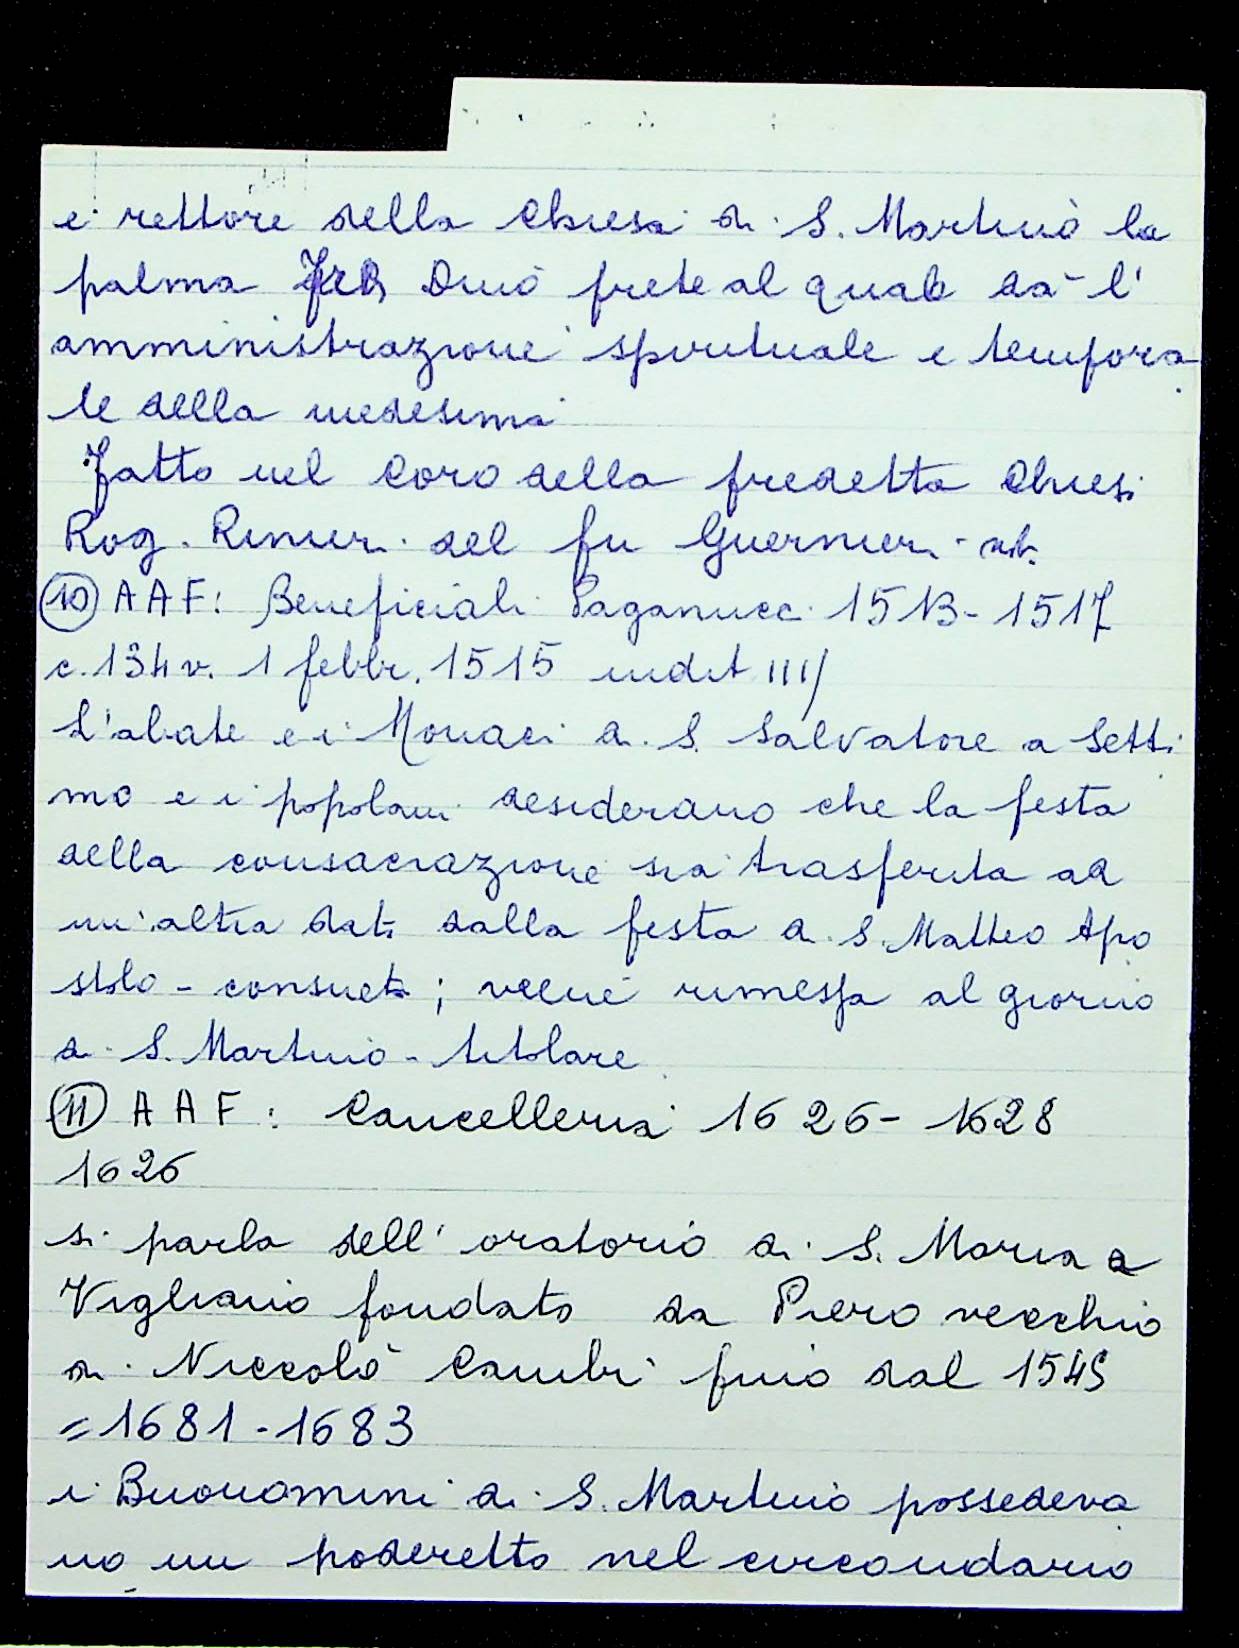 e rettore della Chiesa di S. Martino la
palma Dino prete al quale dà l'
amministrazione spirituale e tempora
le della medesima
Fatto nel Coro della predetta Chiesa
Rog. Rinieri del fu Guernieri not.
10 AAF: Beneficiali Paganucci 1513-1517
c.134v. 1 febbr. 1515 indit III/
L'abate e i Monaci di S. Salvatore a Setti
mo e i popolani desiderano che la festa
della consacrazione sia trasferita ad
un'altra data dalla festa di S. Matteo Apo
stolo - consueta; venne rimessa al giorno
di S. Martino - titolare
11 AAF: Cancelleria 1626-1628
1626
si parla dell'oratorio di S. Maria a
Vigliano fondato da Piero vecchio
di Niccolò Cambi fino dal 1545
=1681-1683
i Buonomini di S. Martino possedeva
no un poderetto nel circondario